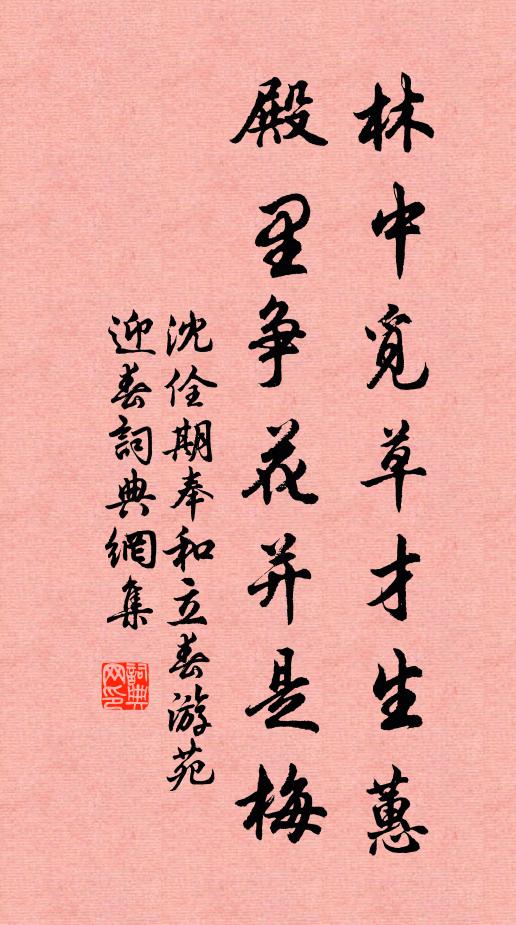 林中觅草才生蕙
殿里争花并是梅
沈佺期奉和立春游苑
迎春詞典網集
詞典网印